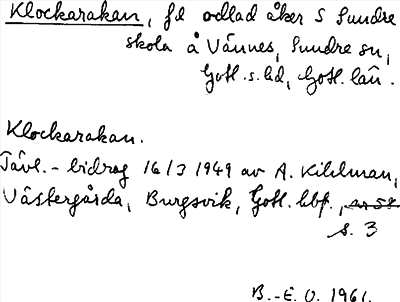 Klockarakan, fd odlad åker S Sundre
skola å Vännes, Sundre sn,
Gotl. s. hd, Gotl. län.
Klockarakan.
Tävl.-bidrag 16/3 1949 av A. Kihlman,
Västergårda, Burgsvik, Gotl. hbf.,
s. 3
B.-E. O. 1961.